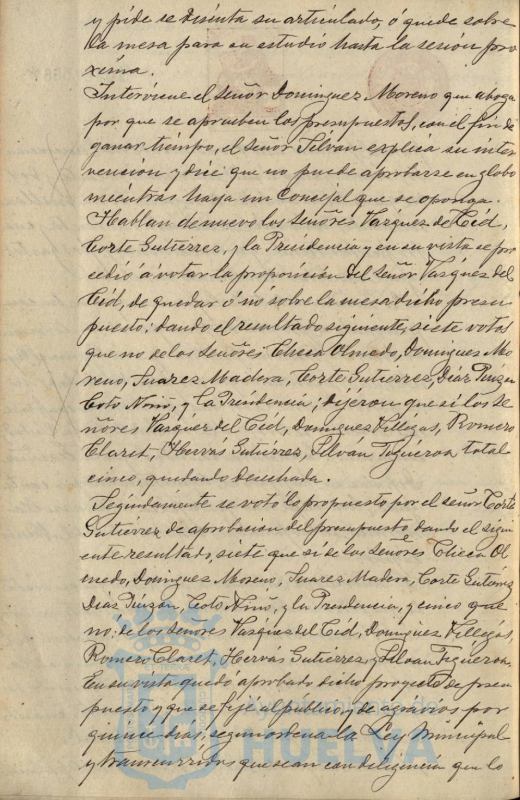 y pide se discuta su articulado, ó quede sobre
la mesa para su estudio hasta la sesión pro
xima.
Interviene el señor Dominguez Moreno que aboga
por que se aprueben los presupuestos, con el fin de
ganar tiempo, el señor Silvan explica su inter
vención y dice que no puede aprobarse en globo
mientras haya un Concejal que se oponga.
Hablan de nuevo los señores Vazquez del Cid,
Corte Gutiérrez, y la Presidencia y en su vista se pro
cedió á votar la proposición del señor Vazquez del
Cid, de quedar ó nó sobre la mesa dicho presu
puesto; dando el resultado siguiente, siete votos
que no de los señores Checa Olmedo, Dominguez Mo
reno, Suarez Madera, Corte Gutierrez, Diaz Punzon
Coto Niño, y la Presidencia; dijeron que si los se
ñores Vazquez del Cid, Dominguez Villegas, Romero
Claret, Hervás Gutiérrez, Silván Figueroa total
cinco, quedando desechada.
Segidamente se votó lo propuesto por el señor Corte
Gutiérrez de aprobación del presupuesto dando el sigui
ente resultado, siete que sí de los señores Checa Ol
medo, Dominguez Moreno, Suarez Madera, Corte Gutiérrez
Diaz Punzon, Coto Niño, y la Presidencia, y cinco que
nó; de los señores Vazquez del Cid, Dominguez Villegas,
Romero Claret, Hervás Gutiérrez, y Silvan Figueroa.
En su vista quedó aprobado dicho proyecto de presu
puesto y que se fijé al publico, y de agravios por
quince dias, segun ordena la Ley Municipal
y transcurridos que sean con diligencia que lo
HUELVA